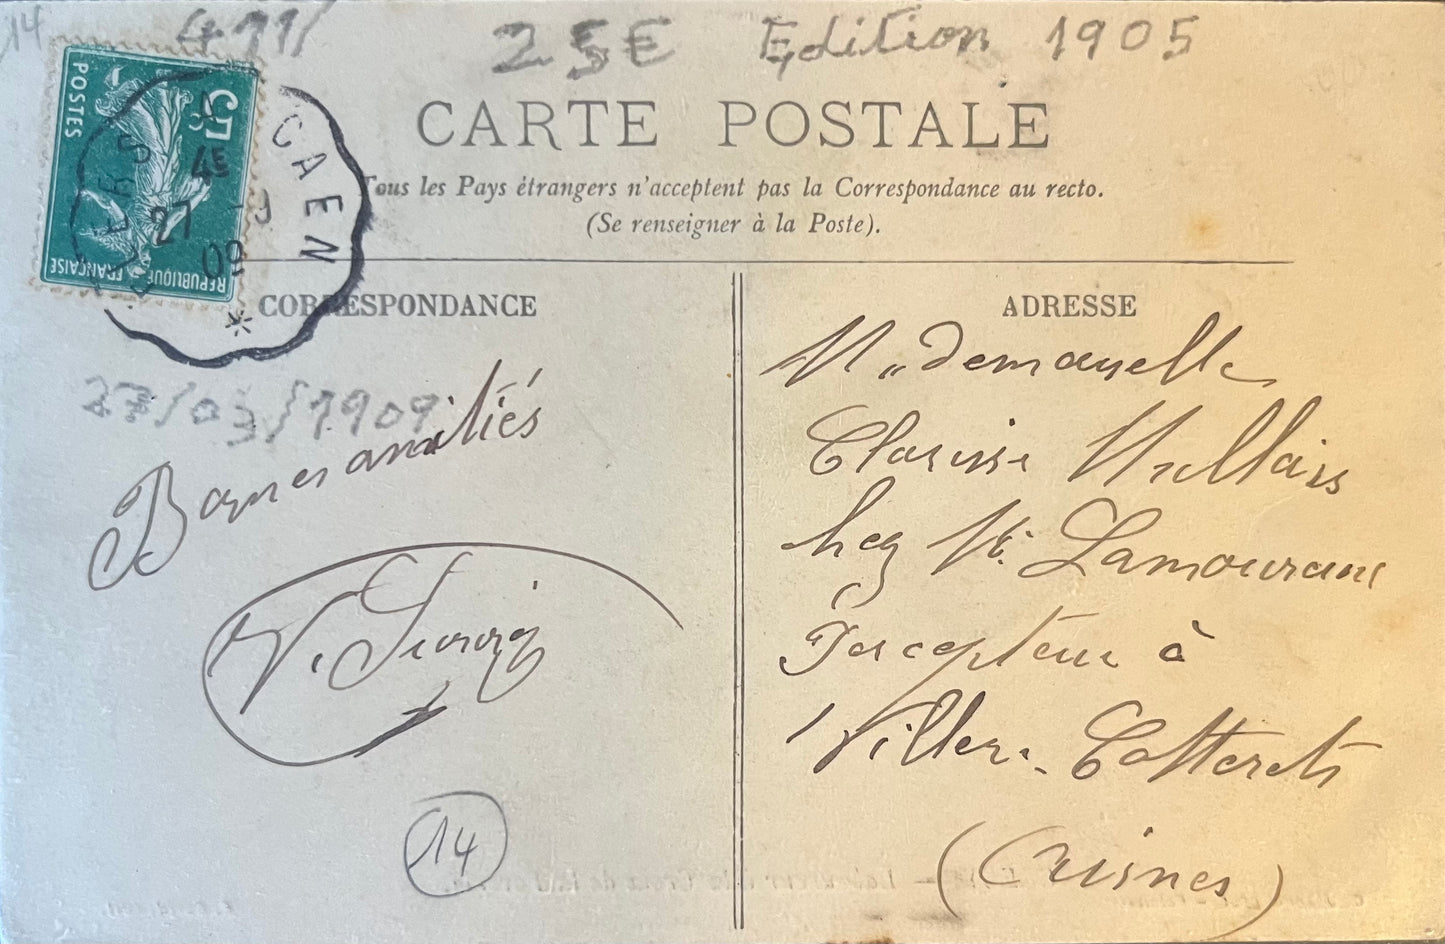 14
499/
25€ Edition 1905
CARTE POSTALE
Tous les Pays étrangers n'acceptent pas la Correspondance au recto.
(Se renseigner à la Poste).
5c
POSTES
REPUBLIQUE FRANÇAISE
A CAEN
4E
27 -9
09
CORRESPONDANCE
27/03/1909
Bonnes amitiés
V.
14
ADRESSE
Mademoiselle
Clarisse
chez Mr. Lamouraux
Percepteur à
Villers-Cotterets
(Aisnes)